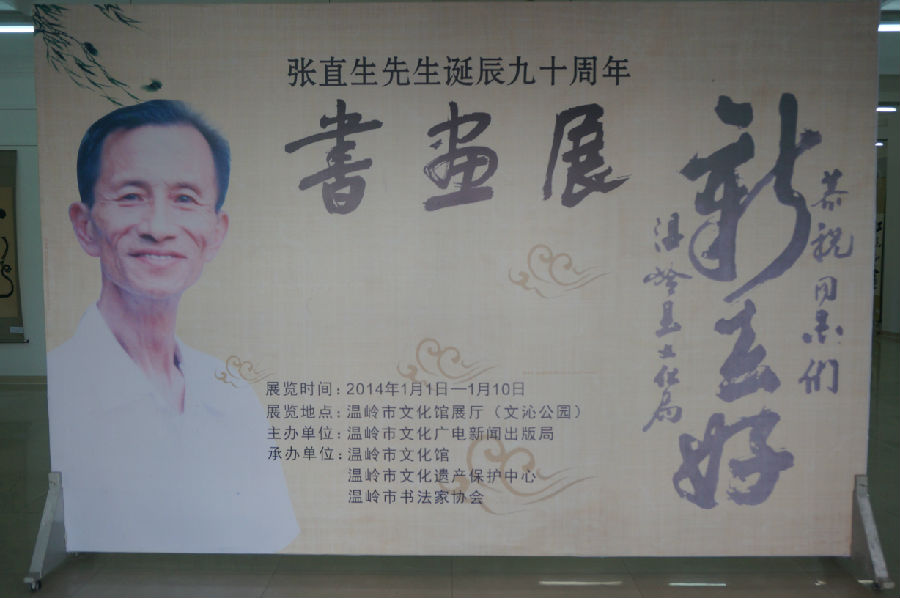 张直生先生诞辰九十周年
書畫展
恭祝同志们
新年好
温岭县文化局
展览时间：2014年1月1日—1月10日
展览地点：温岭市文化馆展厅（文沁公园）
主办单位：温岭市文化广电新闻出版局
承办单位：温岭市文化馆
温岭市文化遗产保护中心
温岭市书法家协会